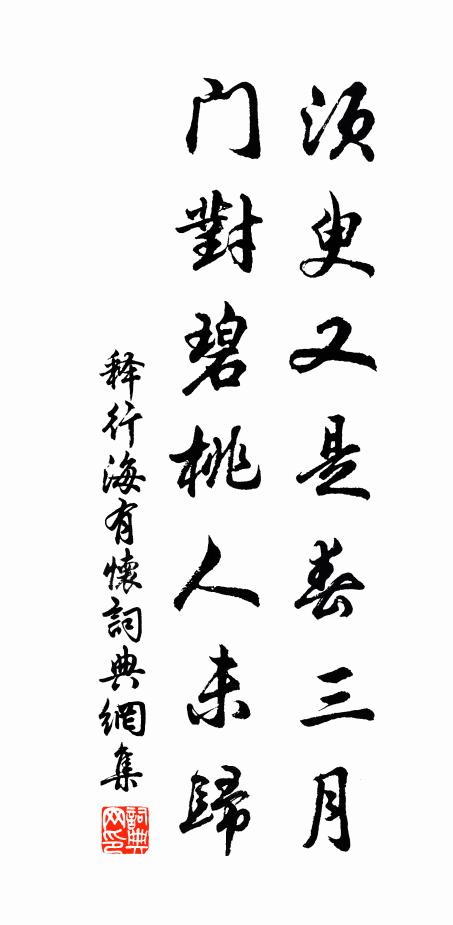 须叟又是春三月
门對碧桃人未歸
释行海有懷詞典網集
詞典
网印